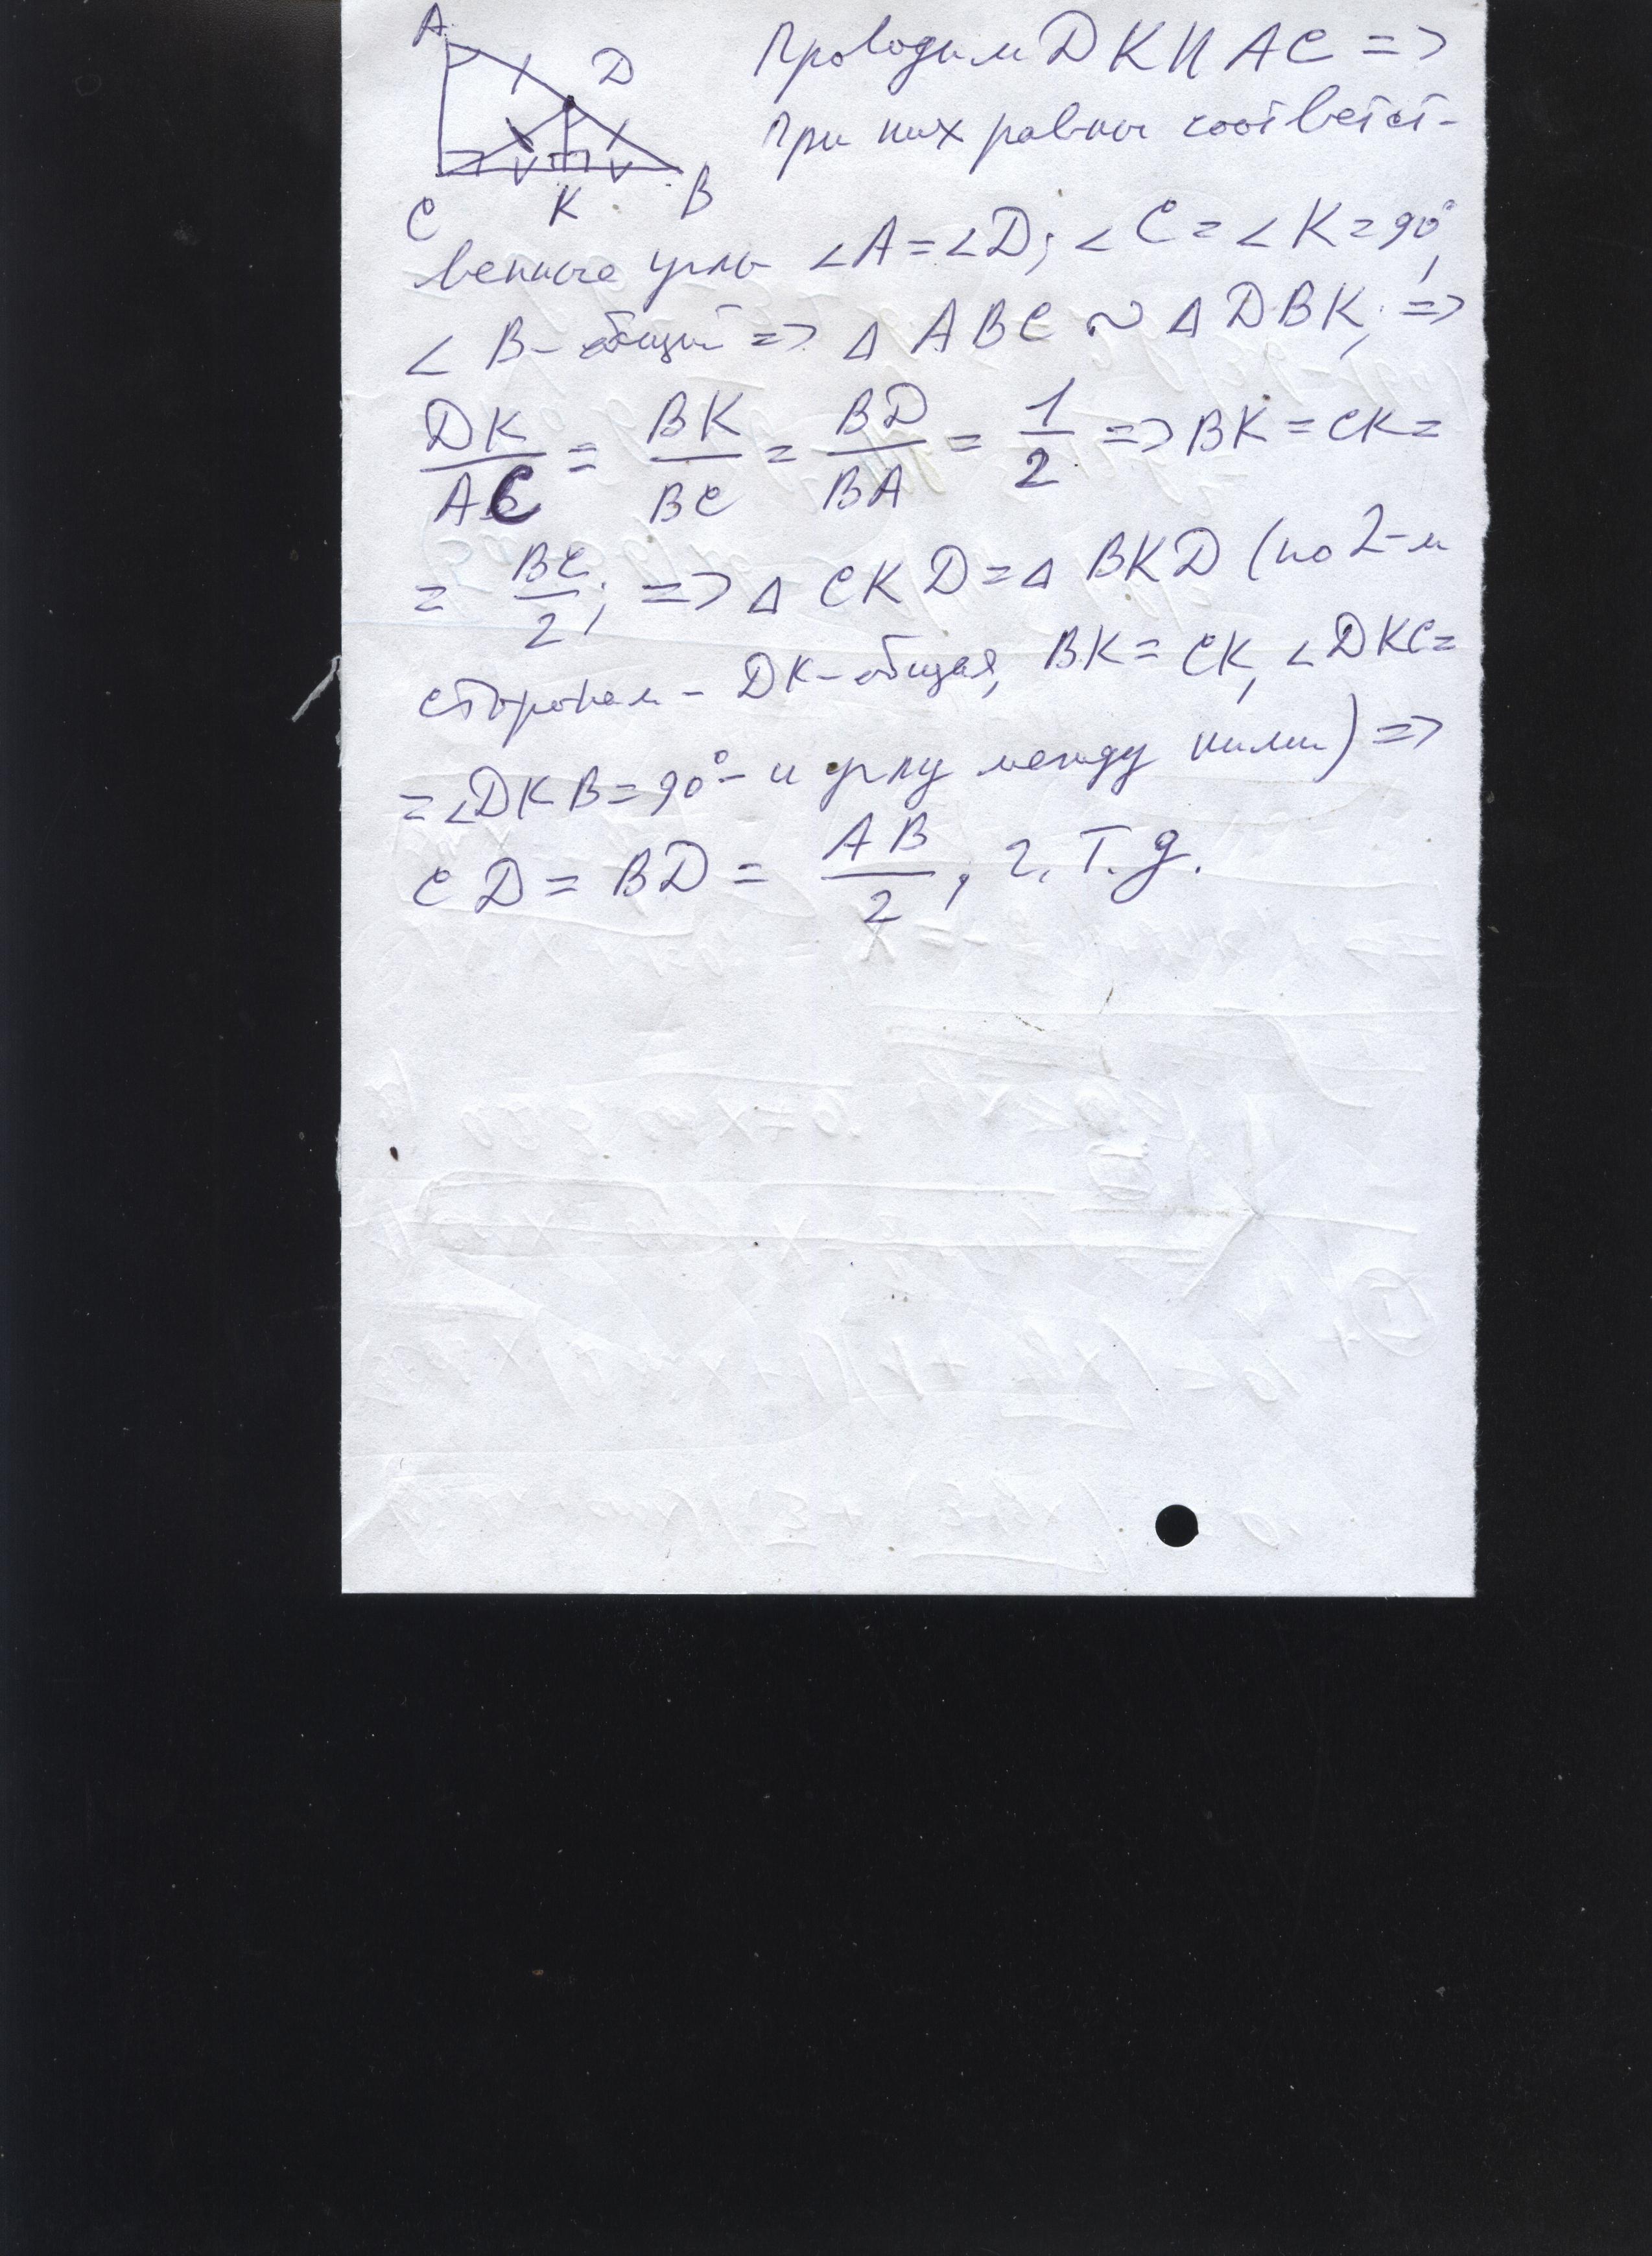 A D C K B
Проводим DK || AC =>
При них равны соответст-
венные углы ∠A = ∠D; ∠C = ∠K = 90°,
∠B - общий => △ABC ~ △DBK; =>
DK/AC = BK/BC = BD/BA = 1/2 => BK = CK =
= BC/2; => △CKD = △BKD (по 2-м
сторонам - DK - общая, BK = CK, ∠DKC =
= ∠DKB = 90° - и углу между ними) =>
CD = BD = AB/2, ч.т.д.